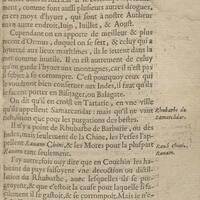 ment, comme font aussi plusieurs autres drogues,
erts moyt d'hyuer, qui sont à nostre Autheur
en vn autre endroit, Iuin, Iuillet, & Aoust.
Cependant on en apporte de meilleur & plus
recent d'Ormus, duquel on se sert, & celuy qui
de
tant inutile. Il en est autrement de celuy
qu'on garde l'hyuer aux montagnes, car il n'est pas
si subject à se corrompre. C'est pourquoy ceux qui
voudront bien conseruer aux Indes, il faut qu'ils
facent porter en Bisnager, ou Balagate.
On dit qu'il en croist en Tartarie, en vne ville
qu'ils appellent Samarcandar: mais qu'il ne vaut
rien, sinon que pour les purgations des bestes.
Il n'y a point de Rhubarbe de Barbarie, ou des
Indes, mais seulement de la Chine, les Perses l'ap-
pellent Rauam Chini, & les Mores pour la pluspart
Rauam tant seulement.
I'ay autrefois ouy dire que en Couchin les ha-
bitans du pays faisoyent vne decoction ou distil-
lation de Rhubarbe, auec lesquelles ils se pur-
geoyent, & que c'estoit la cause pour laquelle il
& se corrompoit, Mais ie n'es-
Rhubarbe de
Samarcandar.
Raud chini,
Rauam.